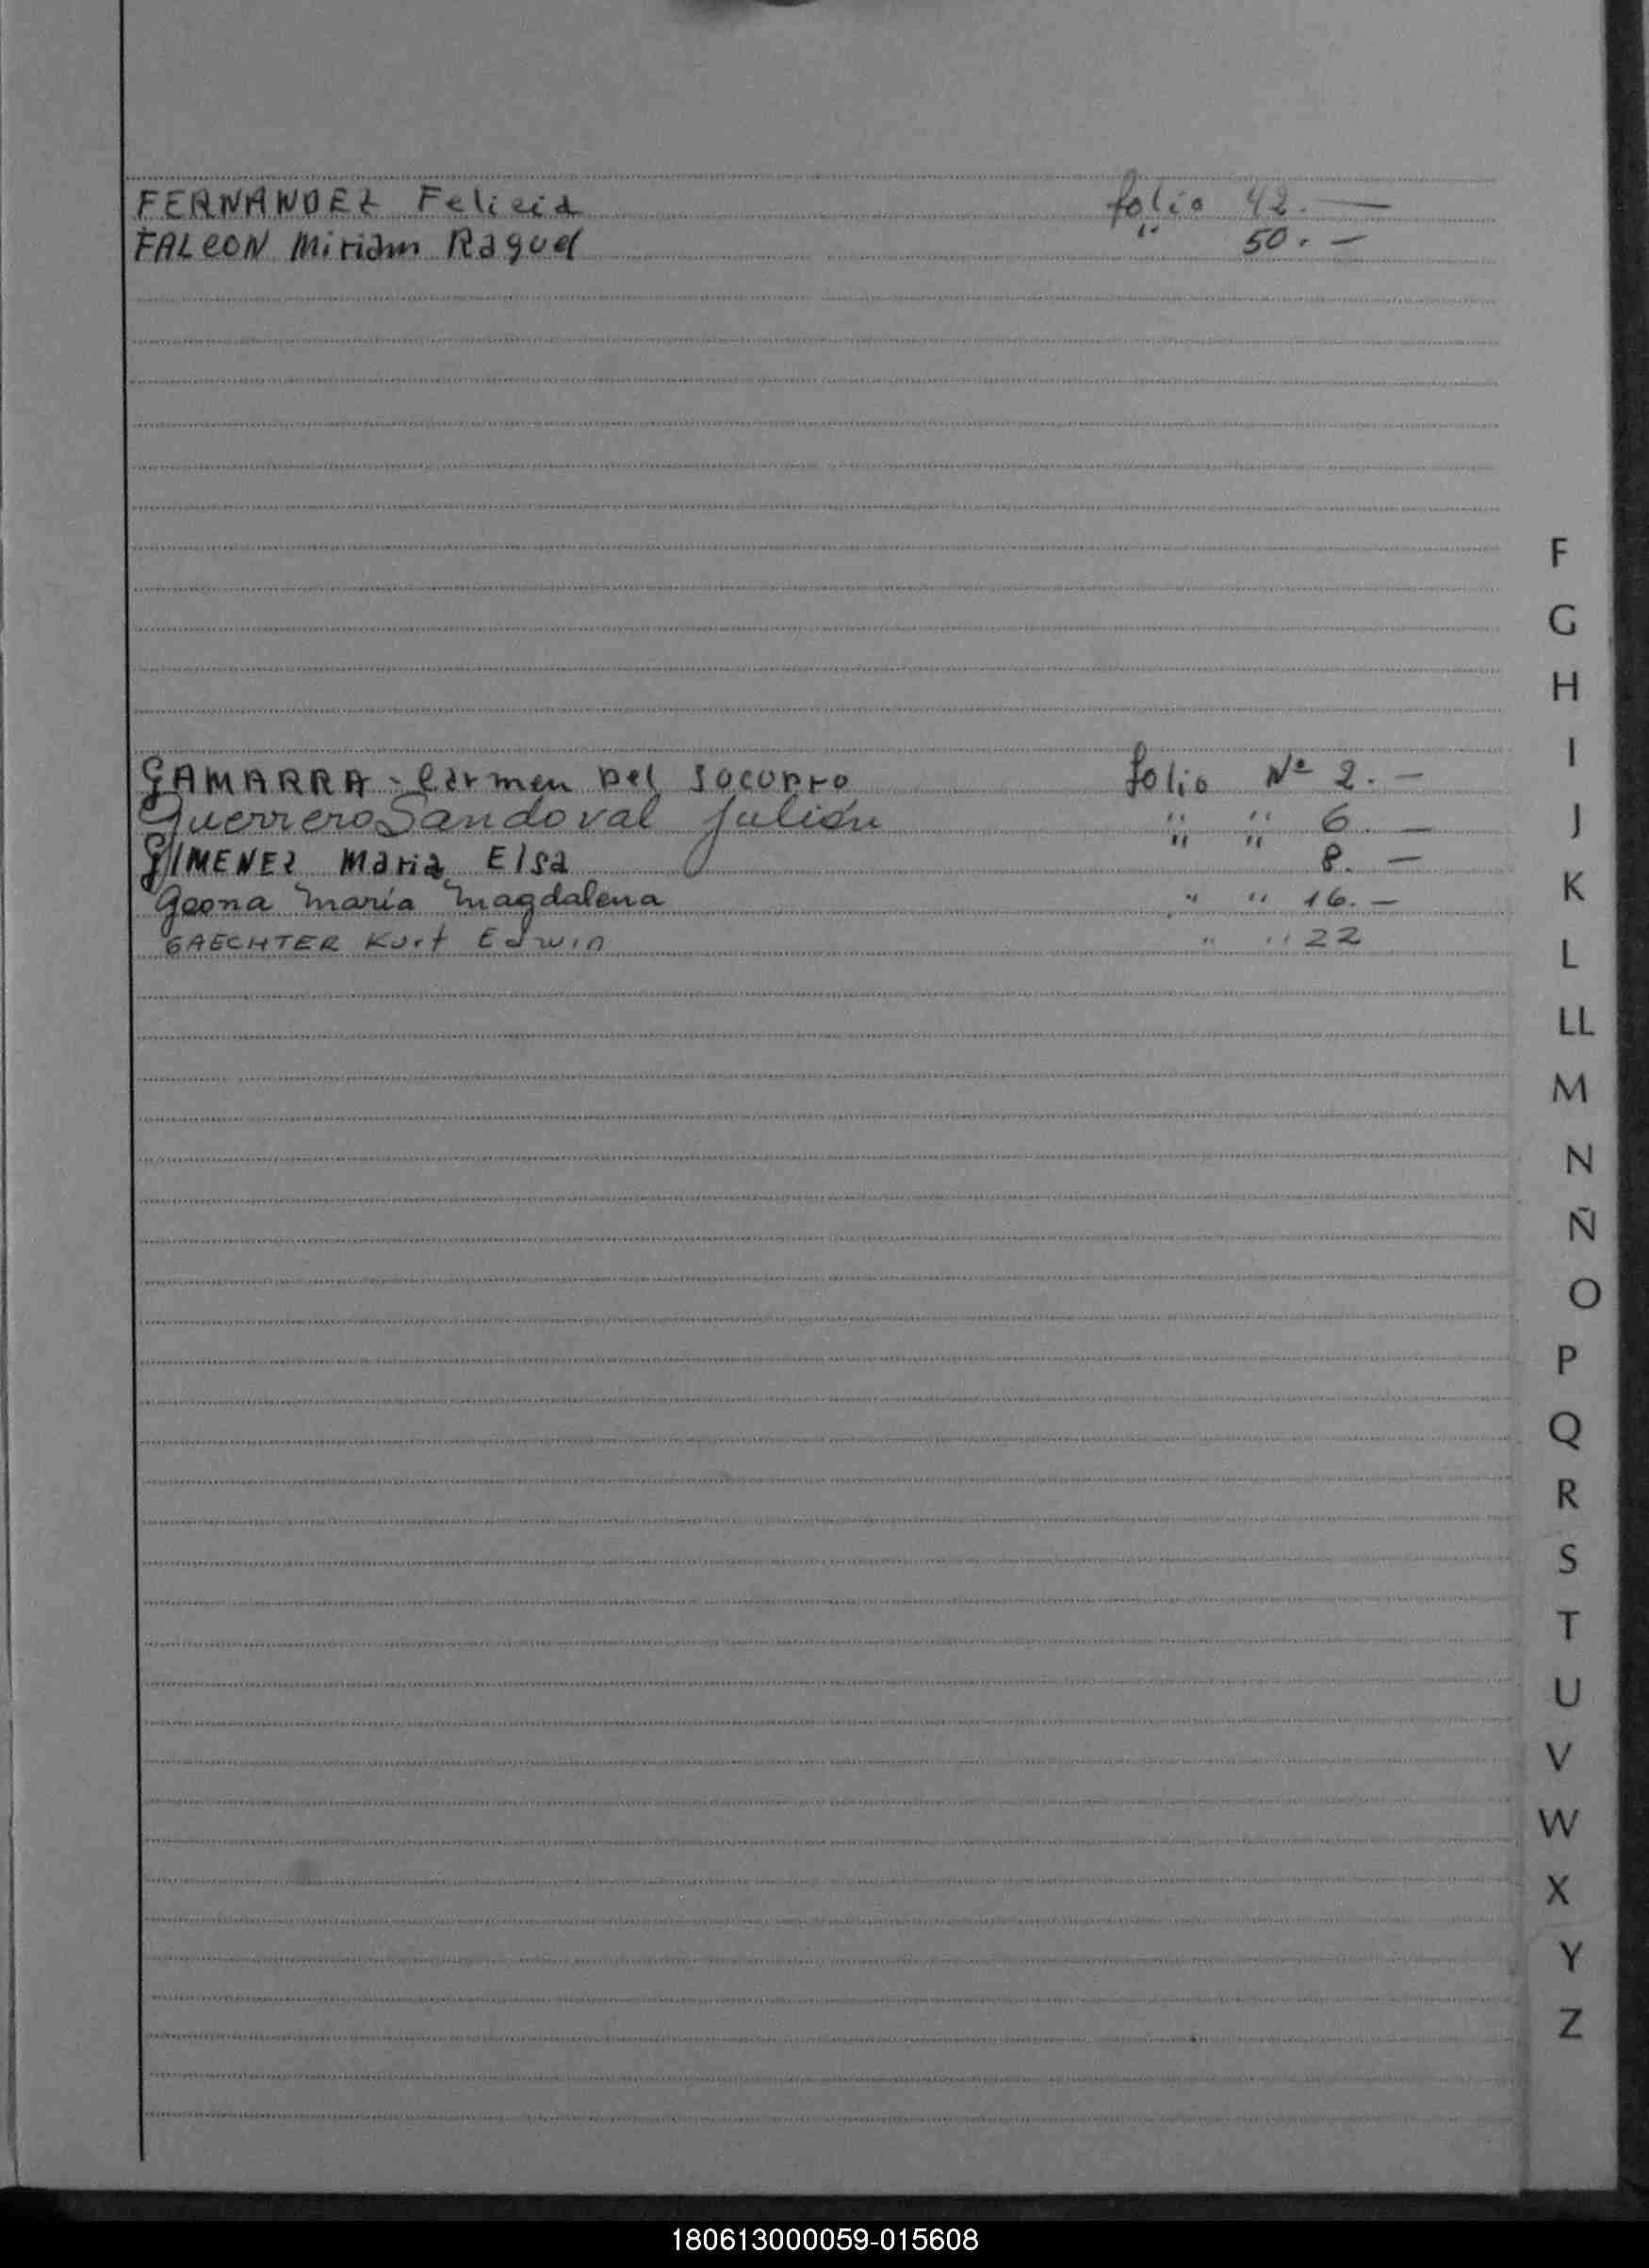 FERNANDEZ Felicia folio 42. —
FALCON Miriam Raquel " 50. —
GAMARRA - Carmen Del Socorro folio Nº 2. —
Guerrero Sandoval Julián " " 6. —
GIMENEZ Maria Elsa " " 8. —
Goona María Magdalena " " 16. —
GAECHTER Kurt Edwin " " 22
F
G
H
I
J
K
L
LL
M
N
Ñ
O
P
Q
R
S
T
U
V
W
X
Y
Z
180613000059-015608